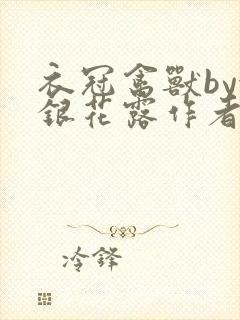 衣冠禽獸by
銀花露作者
冷鋒